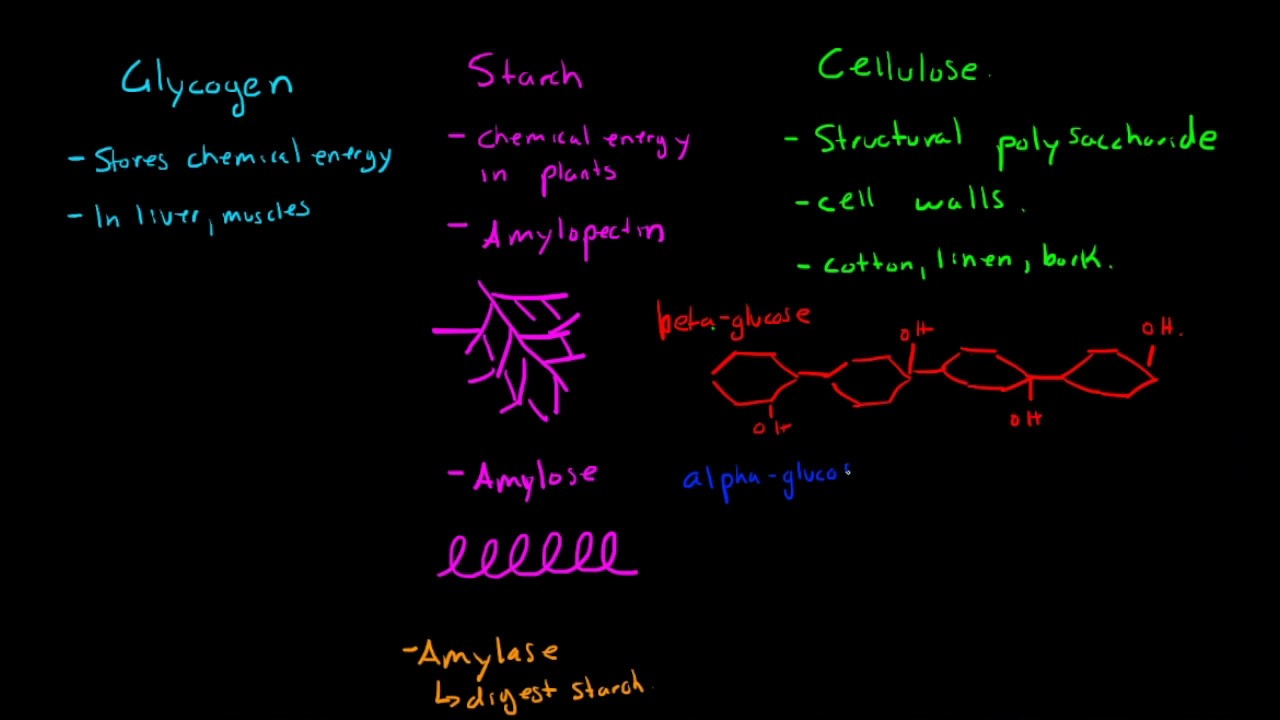 Glycogen
- Stores chemical energy
- In liver, muscles
Starch
- Chemical energy
in plants
- Amylopectin
- Amylose
- Amylase
↳ digest starch
Cellulose.
- Structural polysaccharide
- cell walls.
- cotton, linen, bark.
beta-glucose
OH
OH.
OH
OH
alpha-glucos